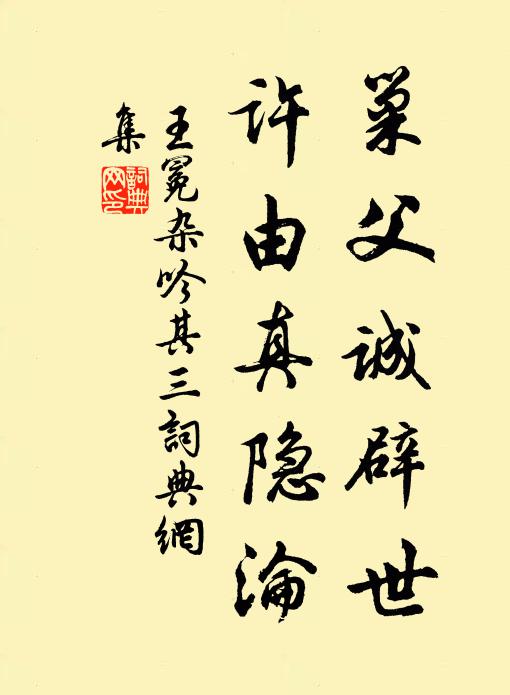 巢父诚辟世
许由真隐沦
王冕杂吟其三詞典網
集
詞典网印